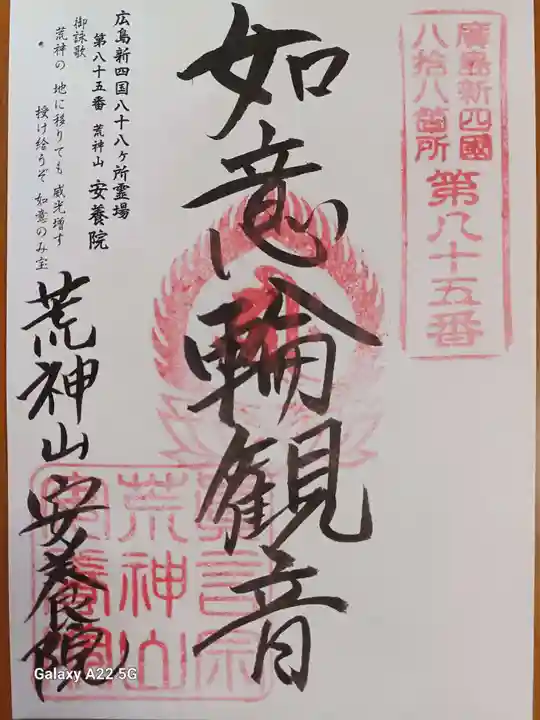 廣島新四國
八拾八箇所
第八十五番
如意輪観音
広島新四国八十八ヶ所霊場
第八十五番 荒神山 安養院
御詠歌
荒神の 地に移りても 威光増す
授け給うぞ 如意のみ宝
荒神山 安養院
真言宗
荒神山
安養院
Galaxy A22 5G